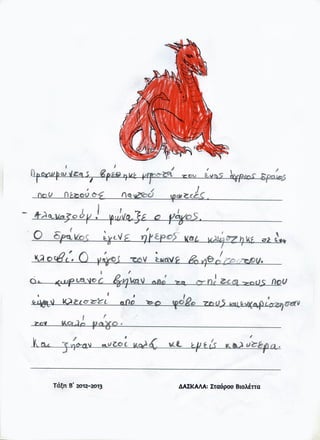 Προχωρώντας, βρέθηκε μπροστά του ένας άγριος δράκος
που πετούσε παντού φωτιές.
- Αλακαζούμ! φώναξε ο μάγος.
Ο δράκος έγινε ήμερος και κλείστηκε σε ένα
κλουβί. Ο μάγος τον έκανε βοηθό του.
Οι χωριανοί βγήκαν από τα σπίτια τους που
είχαν κλειστεί από το φόβο τους και ευχαρίστησαν
τον καλό μάγο.
Και ζήσαν αυτοί καλά και εμείς καλύτερα.
Τάξη Β΄ 2012-2013 ΔΑΣΚΑΛΑ: Σταύρου Βιολέττα